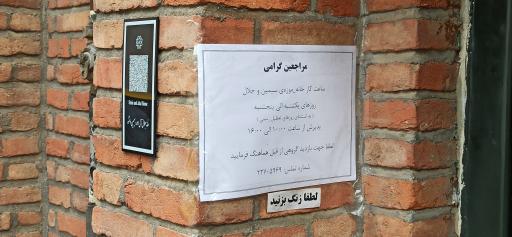 مراجعین گرامی
ساعت کار خانه موزه‌ی سیمین و جلال
روزهای یکشنبه الی پنجشنبه
(به استثنای روزهای تعطیل رسمی)
پذیرش از ساعت ۱۰:۰۰ الی ۱۶:۰۰
لطفا جهت بازدید گروهی از قبل هماهنگ فرمایید
شماره تماس:
لطفا زنگ بزنید